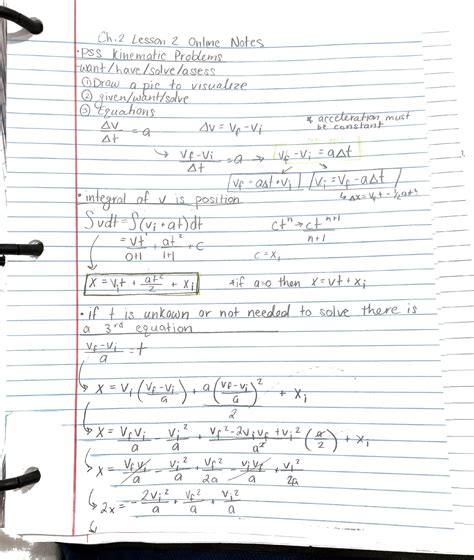 Ch.2 Lesson 2 Online Notes
•PSS Kinematic Problems
want/have/solve/assess
① Draw a pic to visualize
② given/want/solve
③ Equations
* acceleration must be constant
Δv/Δt = a   Δv = vf - vi
→ vf-vi/Δt = a → vf - vi = aΔt
vf = aΔt + vi   vi = vf - aΔt
↳ Δx = vft - ½at²
• integral of v is position
∫vdt = ∫(vi + at)dt   ctⁿ → ctⁿ⁺¹/n+1
= vt¹/0+1 + at²/1+1 + c   c = xi
x = vit + at²/2 + xi   *if a=0 then x = vt + xi
• if t is unkown or not needed to solve there is
a 3rd equation
vf-vi/a = t
x = vi(vf-vi/a) + a(vf-vi/a)²/2 + xi
x = vfvi/a - vi²/a + vf²-2vivf+vi²/a² (a/2) + xi
x = vfvi/a - vi²/a + vf²/2a - vivf/a + vi²/2a
2x = -2vi²/a + vf²/a + vi²/a